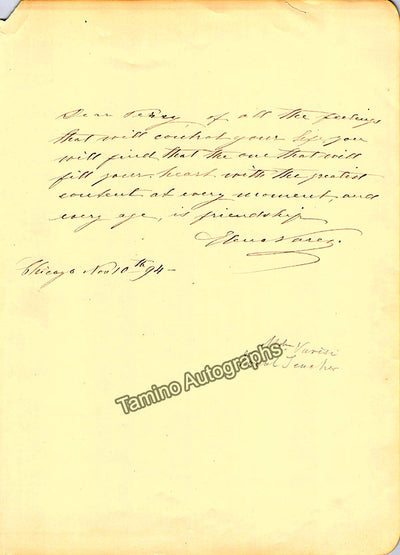 Dear Penny, of all the feelings
that will control your life you
will find that the one that will
fill your heart with the greatest
content at every moment, and
every age, is friendship
Elena Varesi.
Chicago Nov 10th 94 –
Mme Varesi
Teacher
Tamino Autographs